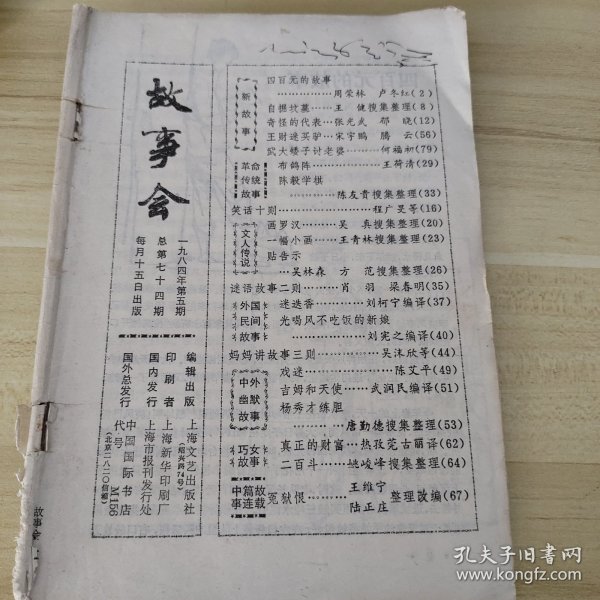 故事会
一九八四年第五期
总第七十四期
每月十五日出版
编辑出版 上海文艺出版社
(绍兴路74号)
印刷者 上海新华印刷厂
国内发行 上海市报刊发行处
国外总发行 中国国际书店
(北京二八二〇信箱)
代号 M166
新故事
四百元的故事
…………周荣林 卢冬红(2)
自掘坟墓……王健搜集整理(8)
奇怪的代表…张光武 郁晓(12)
王财迷买驴…宋宇鹏 腾云(56)
武大矮子讨老婆……何福初(79)
革命传统故事
布鸽阵…………王荷清(29)
陈毅学棋
…………陈友贵搜集整理(33)
笑话十则…………程广昊等(16)
文人传说
画罗汉……吴真搜集整理(20)
一幅小画…王青林搜集整理(23)
贴告示
…吴林森 方范搜集整理(26)
谜语故事二则…肖羽 梁春明(35)
外国民间故事
迷迭香………刘柯宁编译(37)
光喝风不吃饭的新娘
…………刘宪之编译(40)
妈妈讲故事三则……吴沫欣等(44)
中外幽默故事
戏迷…………陈艾平(49)
吉姆和天使……武润民编译(51)
杨秀才练胆
…………唐勤德搜集整理(53)
巧女故事
真正的财富…热孜莞古丽译(62)
二百斗……姚峻峰搜集整理(64)
中篇故事连载
冤狱恨………王维宁 陆正庄 整理改编(67)
故事会
孔夫子旧书网
www.kongfz.com